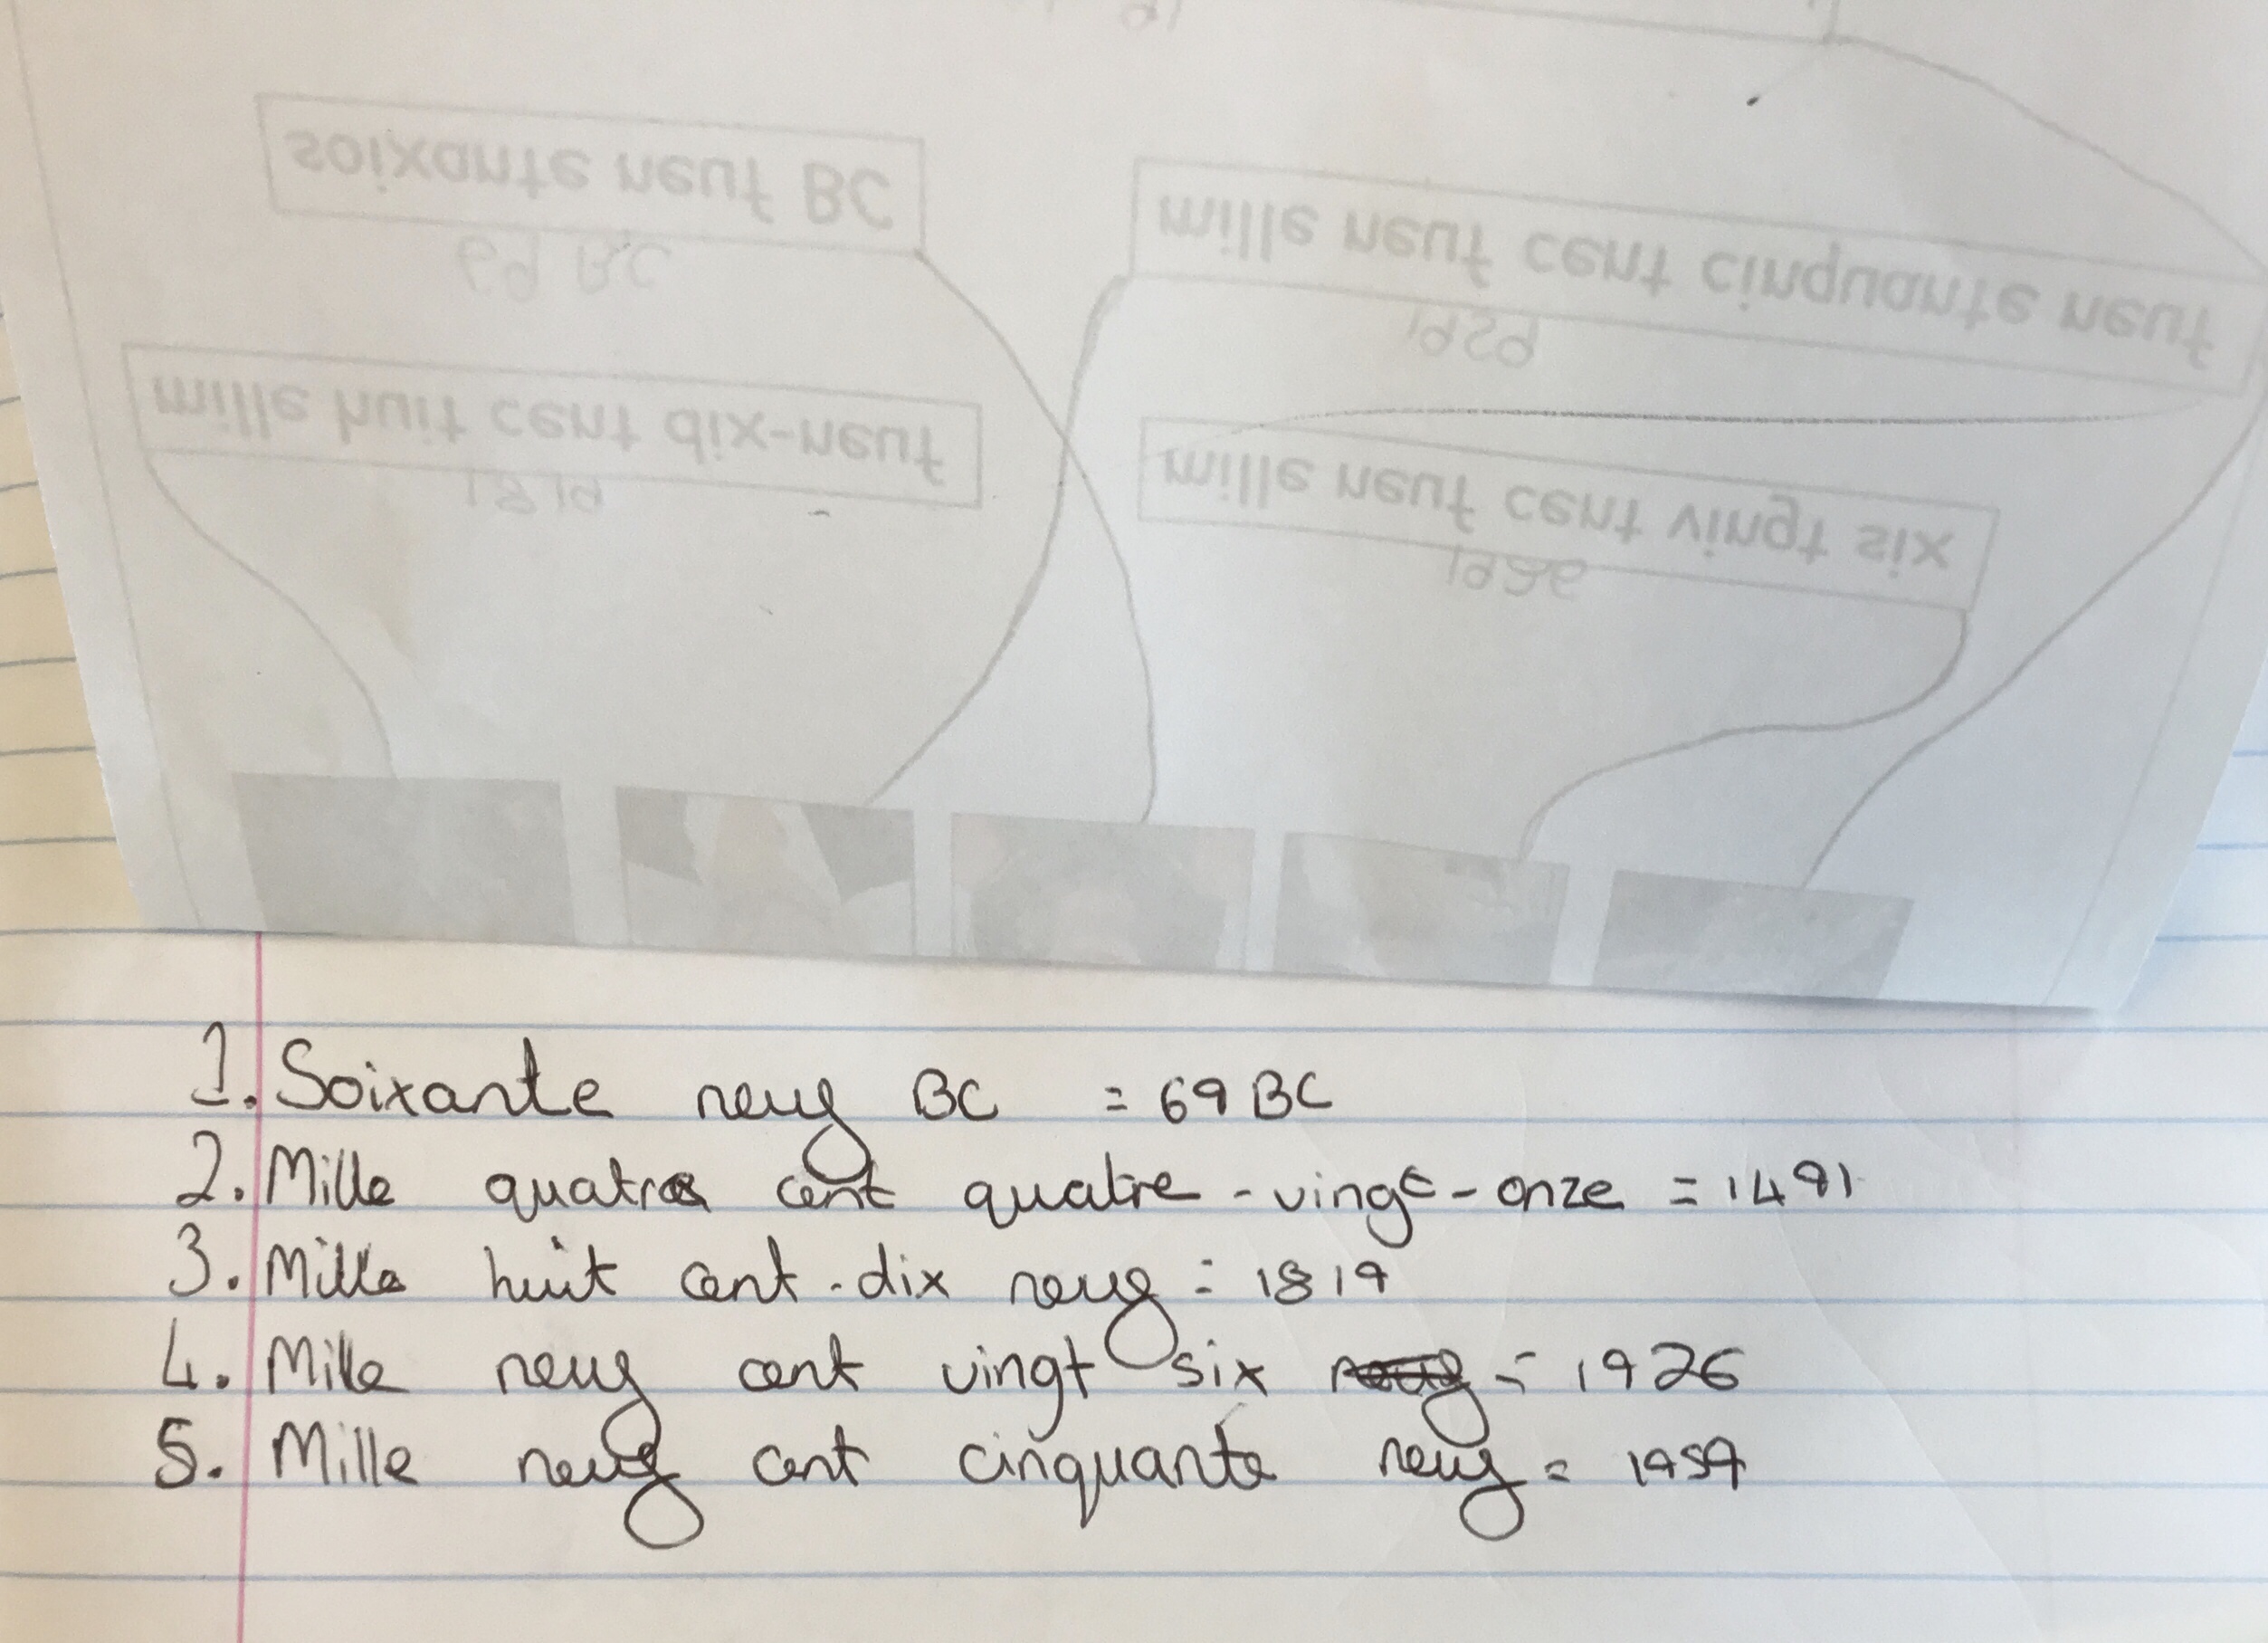 soixante neuf BC
69 BC
mille neuf cent cinquante neuf
1959
mille huit cent dix-neuf
1819
mille neuf cent vingt six
1926
1. Soixante neuf BC = 69 BC
2. Mille quatre cent quatre-vingt-onze = 1491
3. Mille huit cent-dix neuf = 1819
4. Mille neuf cent vingt six neuf = 1926
5. Mille neuf cent cinquante neuf = 1959